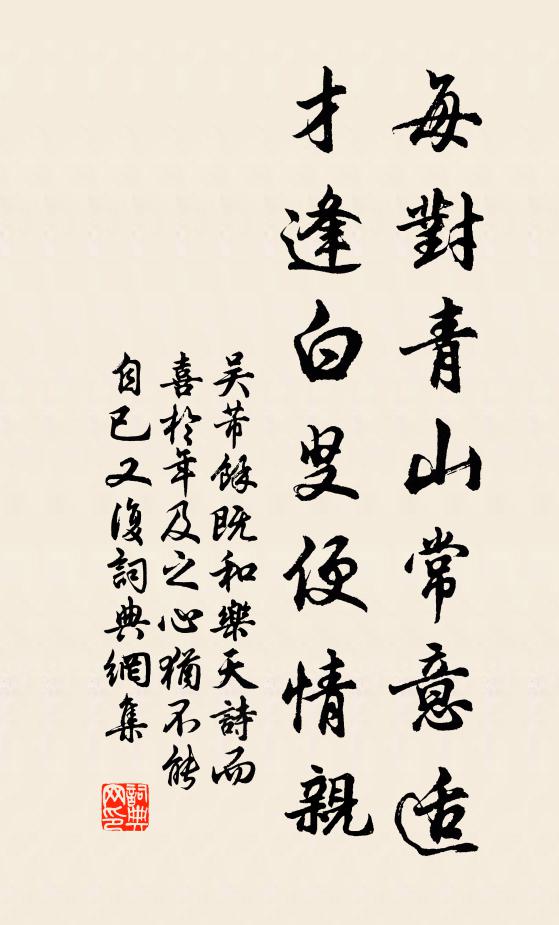 每對青山常意適
才逢白叟便情親
吳芾餘既和樂天詩而
喜於年及之心猶不能
自已又復詞典網集
詞典网印